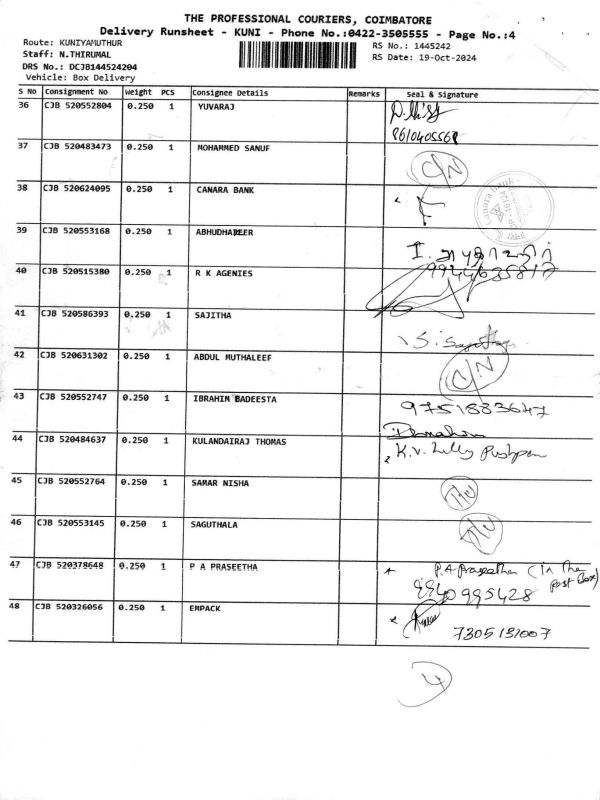 THE PROFESSIONAL COURIERS, COIMBATORE
Delivery Runsheet - KUNI - Phone No.:0422-3505555 - Page No.:4
Route: KUNIYAMUTHUR
RS No.: 1445242
Staff: N.THIRUMAL
RS Date: 19-Oct-2024
DRS No.: DCJB144524204
Vehicle: Box Delivery
S No Consignment No Weight PCS Consignee Details Remarks Seal & Signature
36 CJB 520552804 0.250 1 YUVARAJ
8610405568
37 CJB 520483473 0.250 1 MOHAMMED SANUF C/N
38 CJB 520624095 0.250 1 CANARA BANK
39 CJB 520553168 0.250 1 ABHUDHAHEER I.
40 CJB 520515380 0.250 1 R K AGENIES 9944635817
41 CJB 520586393 0.250 1 SAJITHA S.
42 CJB 520631302 0.250 1 ABDUL MUTHALEEF C/N
43 CJB 520552747 0.250 1 IBRAHIM BADEESTA 9751883647
44 CJB 520484637 0.250 1 KULANDAIRAJ THOMAS K.V. Lilly Pushpam
45 CJB 520552764 0.250 1 SAMAR NISHA
46 CJB 520553145 0.250 1 SAGUTHALA
47 CJB 520378648 0.250 1 P A PRASEETHA P.A Praseetha (in the post Box)
9940995428
48 CJB 520326056 0.250 1 EMPACK
7305131007